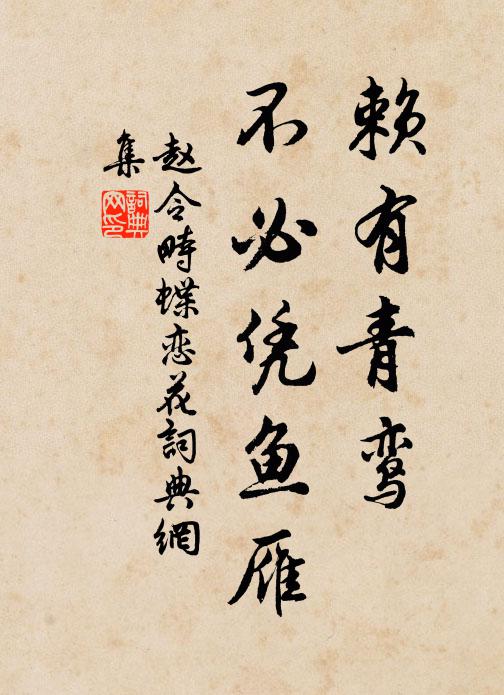 赖有青鸾
不必凭鱼雁
赵令畤蝶恋花词典網
集
詞典
网印